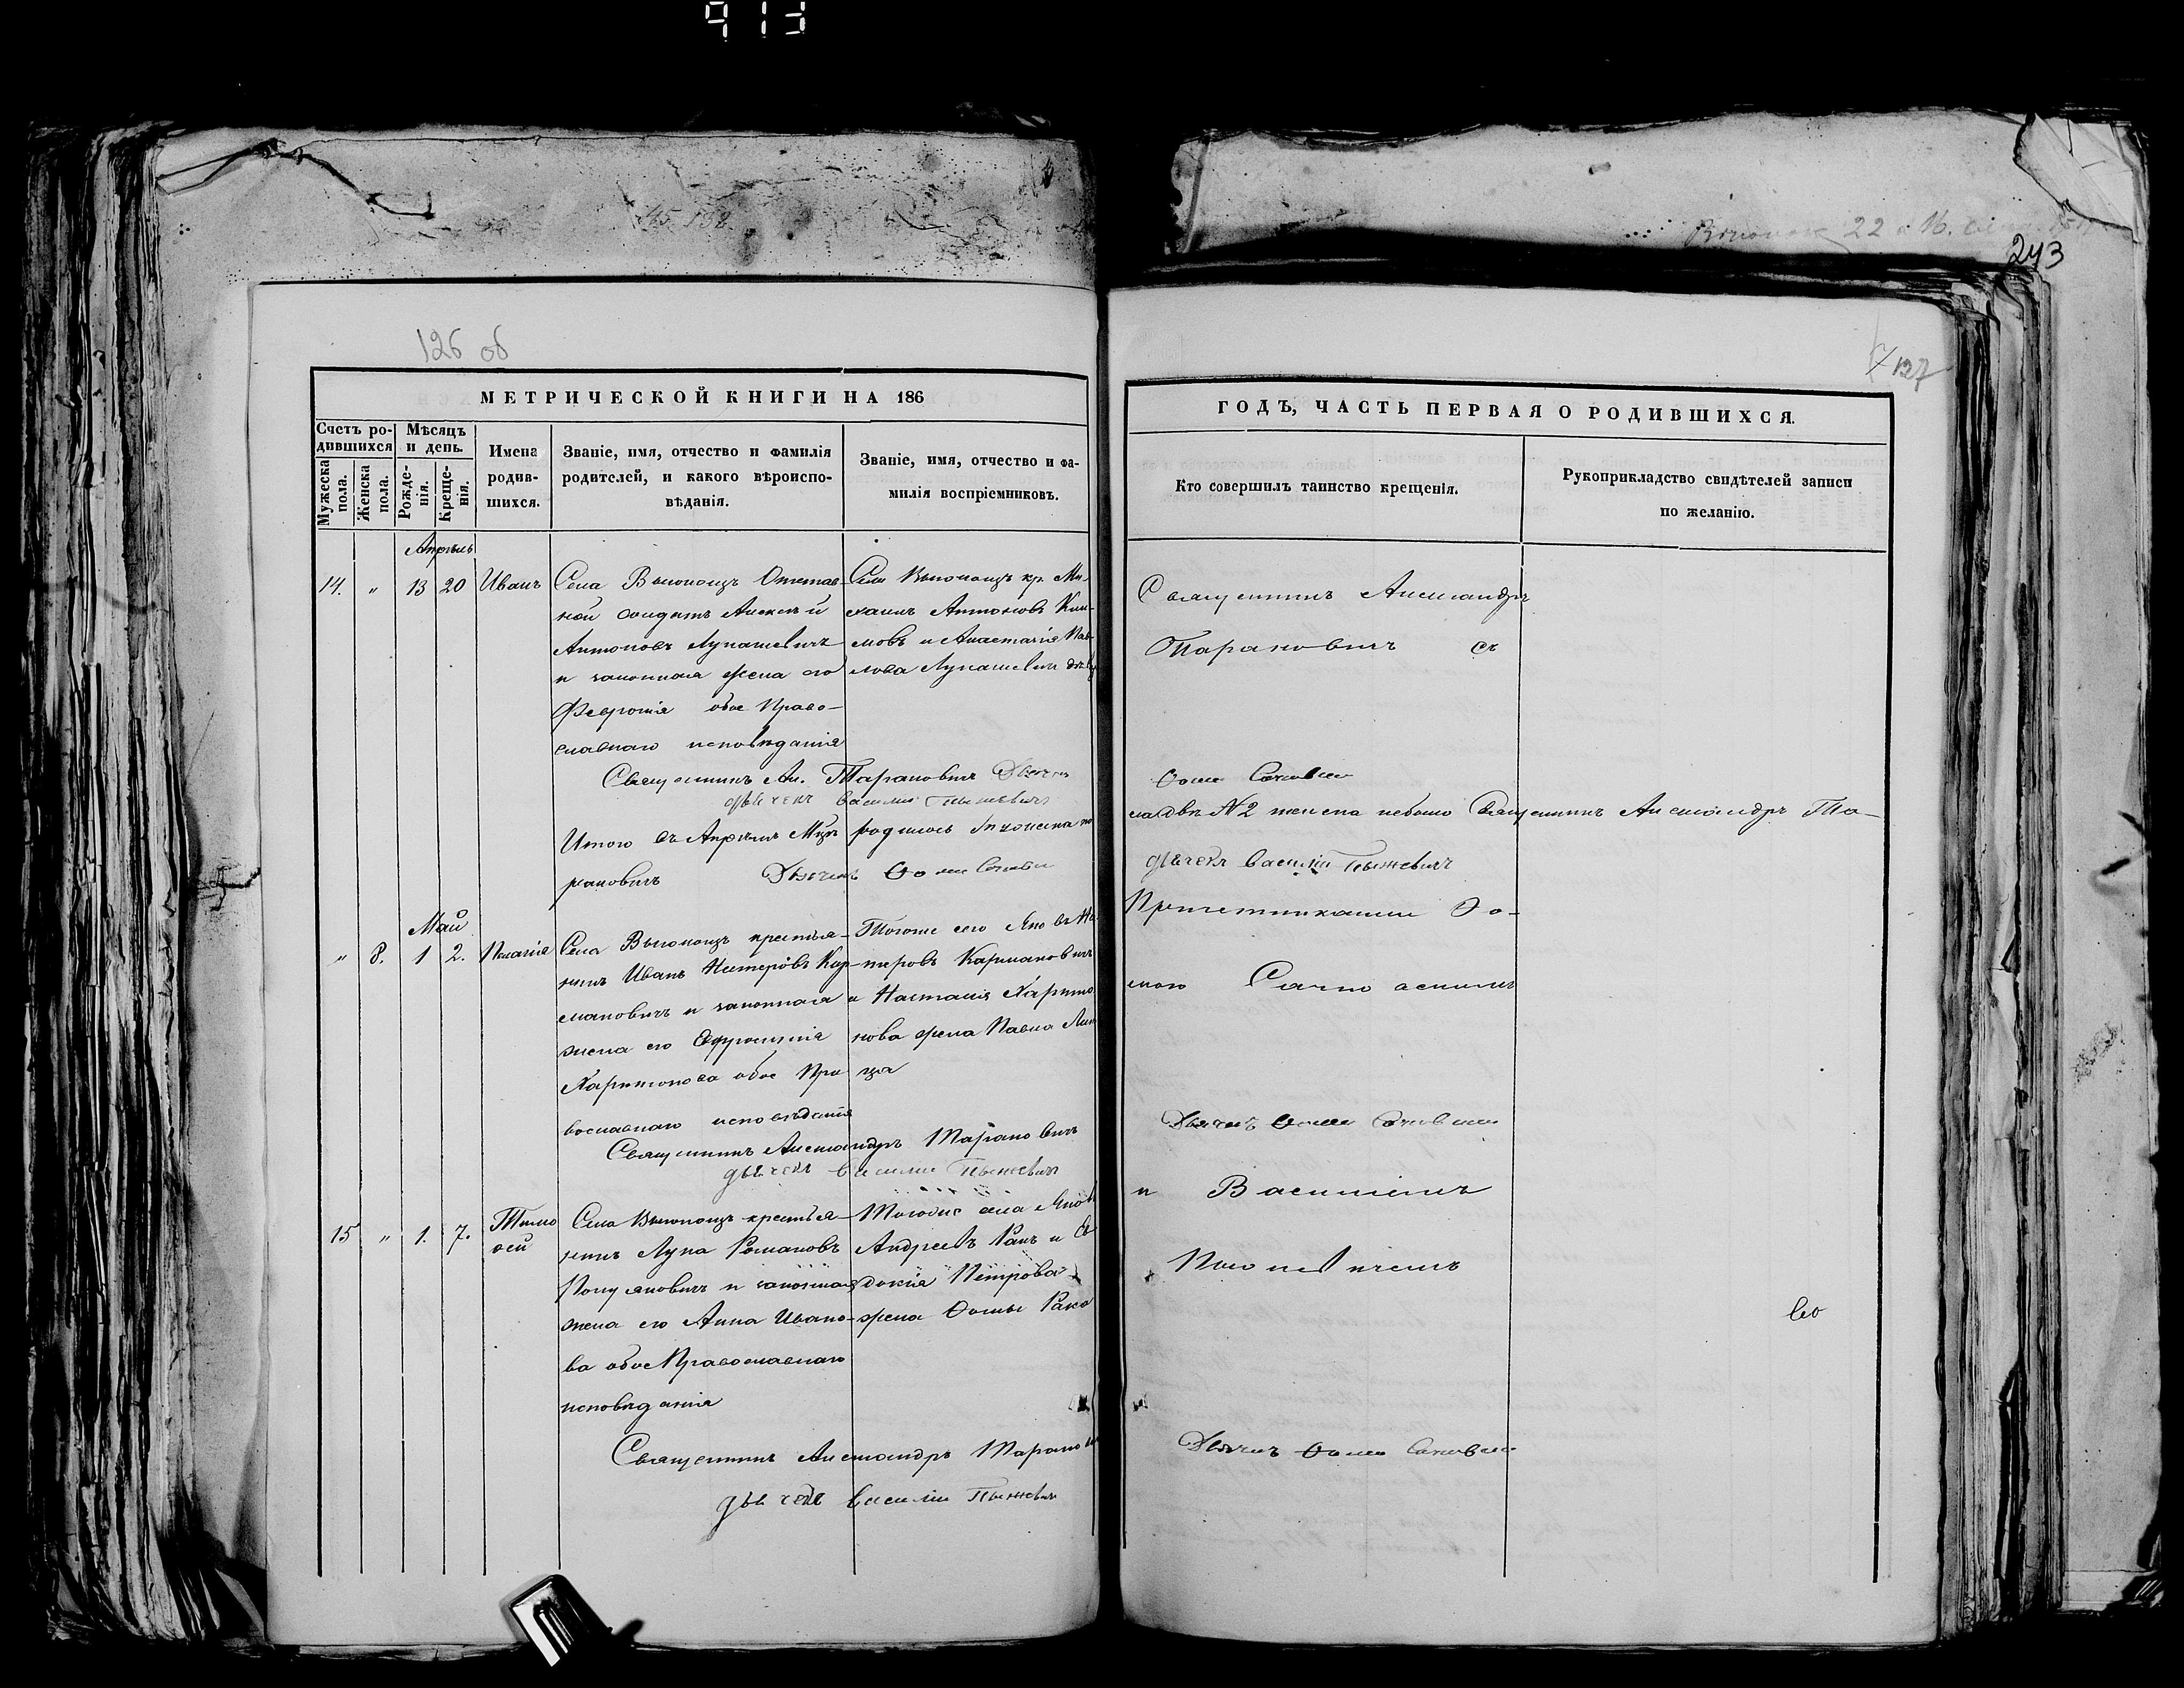 913
243
126 об
127
МЕТРИЧЕСКОЙ КНИГИ НА 186
Счетъ ро-
дившихся
Мѣсяцъ
и день.
Мужеска
пола.
Женска
пола.
Рожде-
нія.
Креще-
нія.
Имена
родив-
шихся.
Званіе, имя, отчество и фамилія
родителей, и какого вѣроиспо-
вѣданія.
Званіе, имя, отчество и фа-
милія воспріемниковъ.
Апрѣль
14. " 13 20 Иванъ
Села Выгонощъ Отстав-
ной солдатъ Алексѣй
Антоновъ Лукашевичъ
и законная жена его
Февронія обое Право-
славнаго исповѣданія
Села Выгонощъ кр. Ми-
хаилъ Антоновъ Кли-
мовъ и Анастасія Пав-
лова Лукашевич
Священникъ Ал. Тарановичъ Дьячекъ
дьячекъ Василий Пыжевичъ
Итого въ Апрѣлѣ Мцѣ родилось
рановичъ Дьячекъ Ѳома
Май
" 8. 1 2. Пелагія
Села Выгонощъ крестья-
нинъ Иванъ Нестеровъ Кар-
мановичъ и законная
жена его Евфросинія
Харитонова обое Пра
вославнаго исповѣданія
Тогоже села Яковъ Не
теровъ Кармановичъ
и Настасія Харито
нова жена Павла
Священникъ Александръ Тарановичъ
дьячекъ Василий Пыжевичъ
15 " 1. 7. Тимо
ѳей
Села Выгонощъ крестья-
нинъ Лука Романовъ
и законная
жена его Анна Ивано-
ва обое Православнаго
исповѣданія
Тогоже села Яковъ
Андреевъ Ракъ и Ев
докія Петрова
жена Ѳомы Рака
Священникъ Александръ Тарано
дьячекъ Василий Пыжевич
ГОДЪ, ЧАСТЬ ПЕРВАЯ О РОДИВШИХСЯ.
Кто совершилъ таинство крещенія.
Рукоприкладство свидѣтелей записи
по желанію.
Священникъ Александръ
Тарановичъ съ
Ѳома
№ 2 женска небыло Священникъ Александръ Та-
дьячекъ Василій Пыжевичъ
Причетниками Ѳо-
мою
Дьячекъ Ѳома
и Василіемъ
Дьячекъ Ѳома